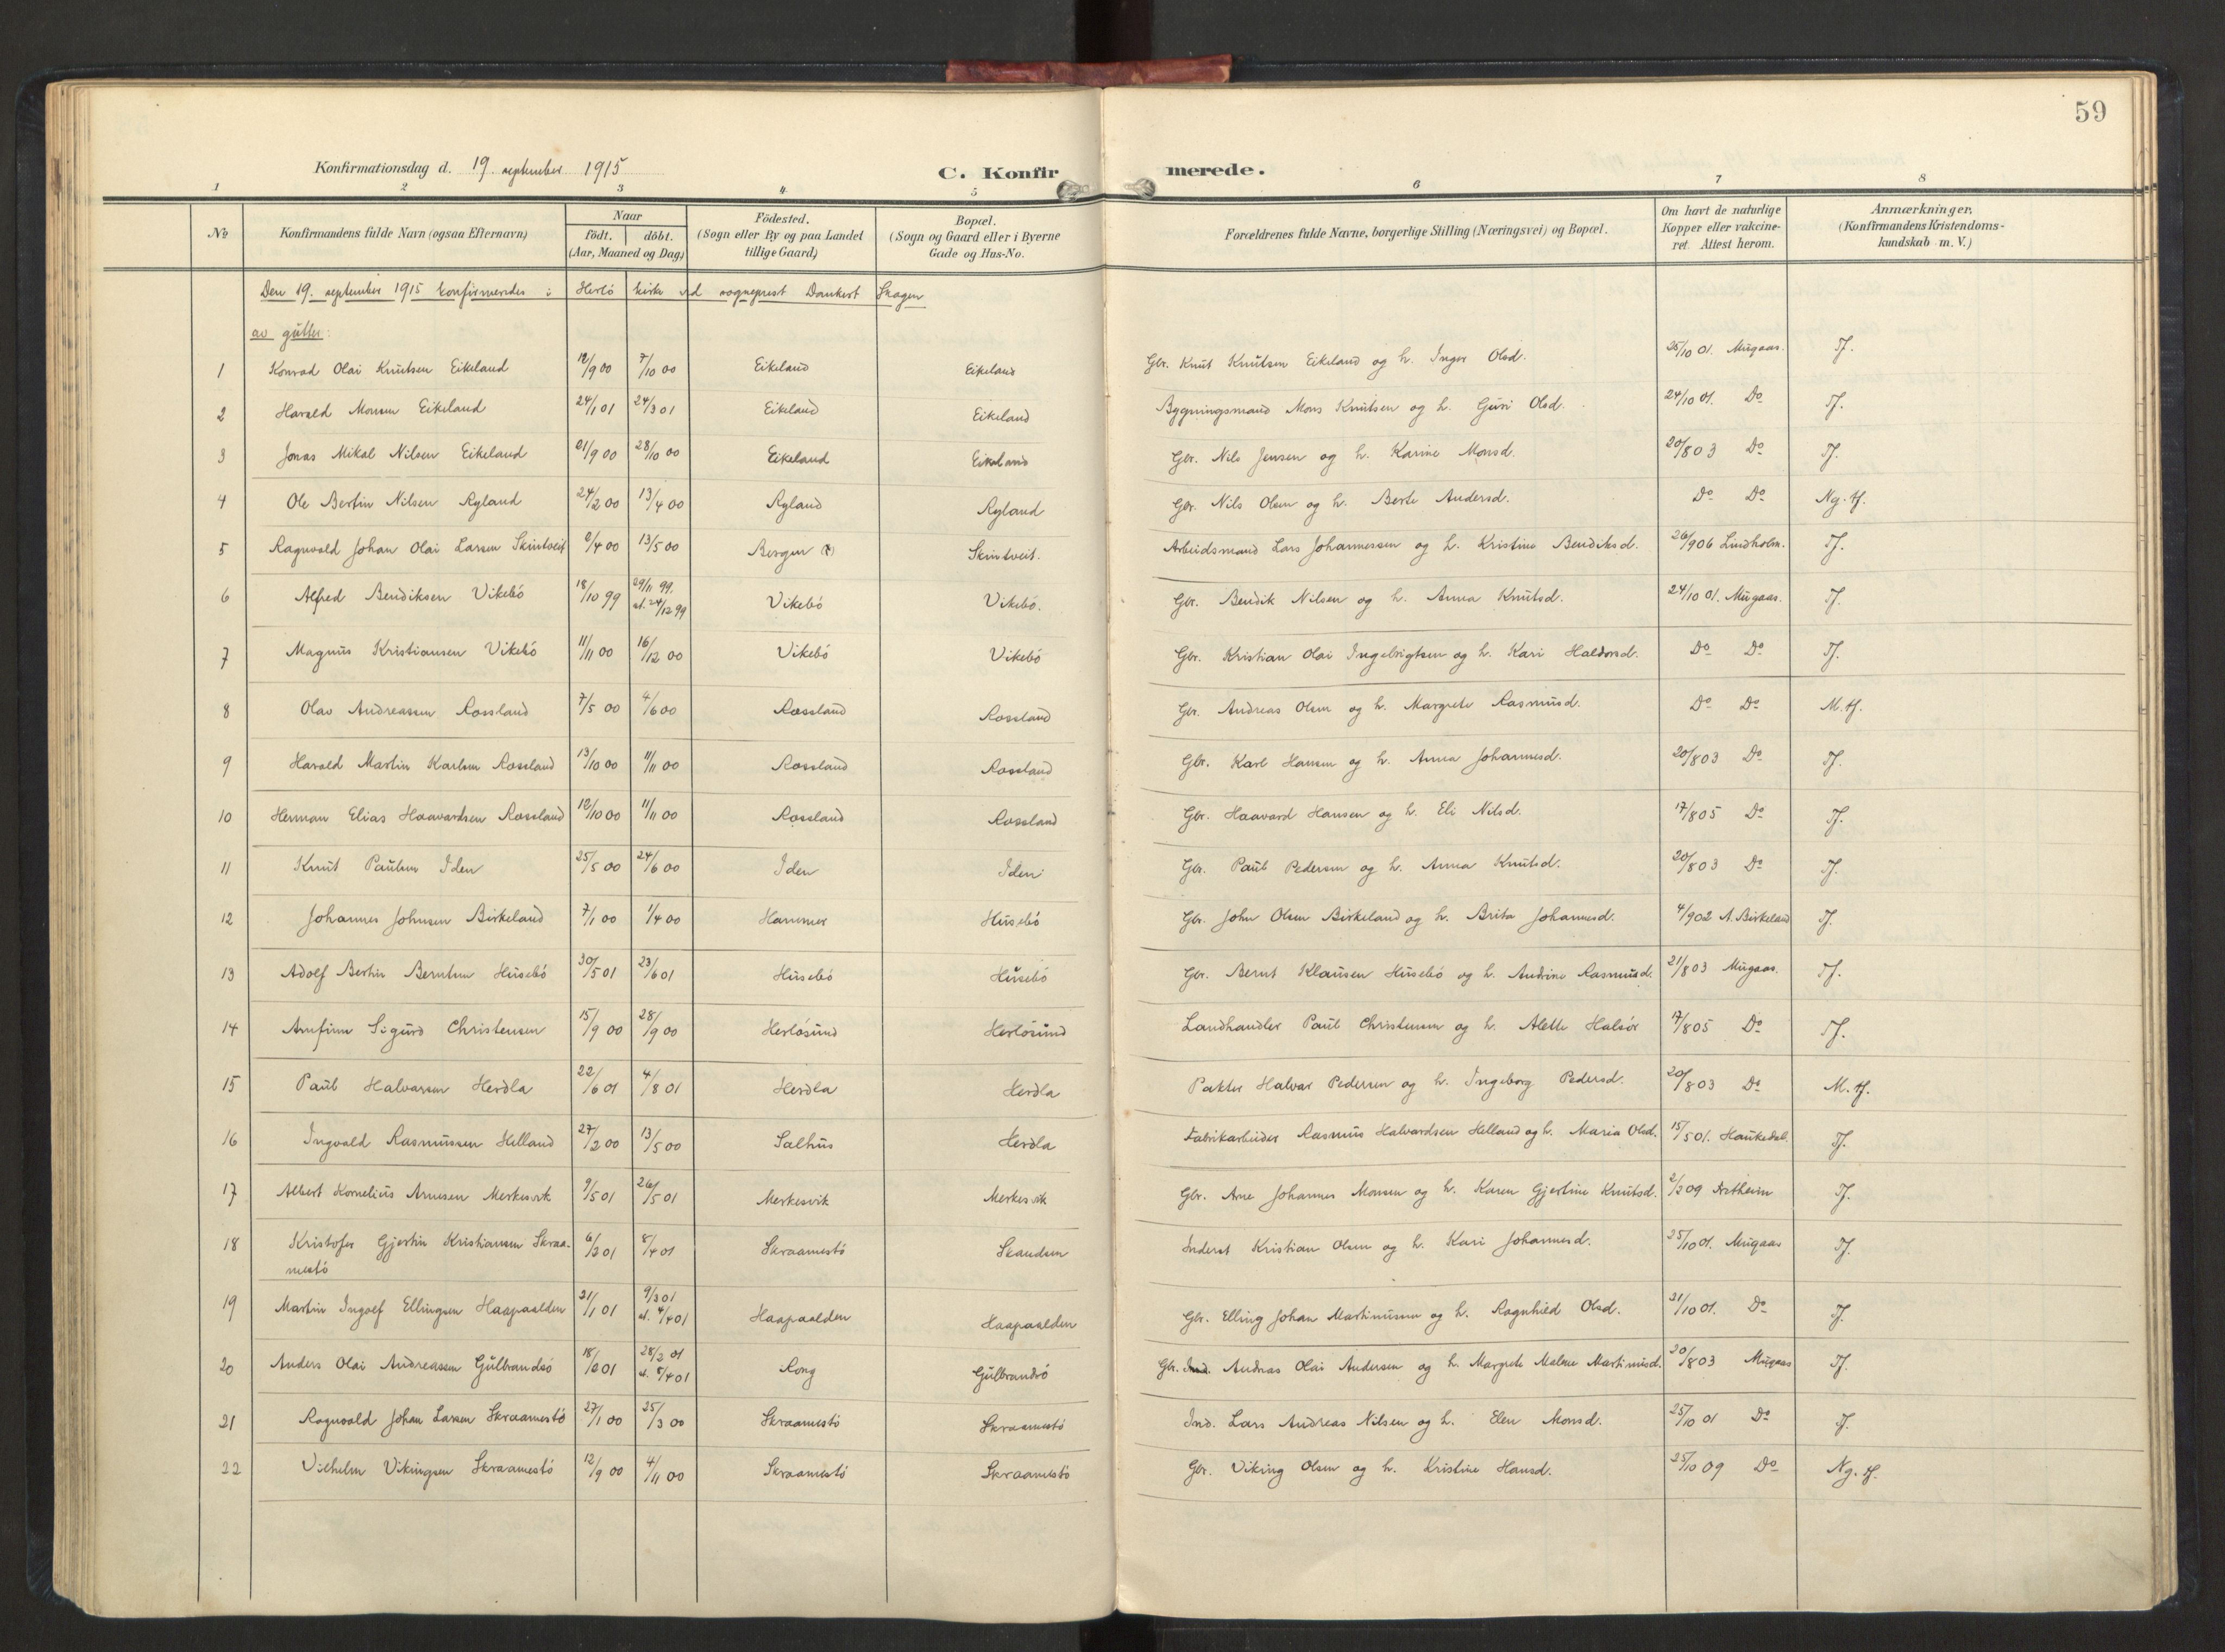 59
Konfirmationsdag d. 19. september 1915
C. Konfir merede.
1 2 3 4 5 6 7 8
No
Konfirmandens fulde Navn (ogsaa Efternavn)
Naar
födt. döbt.
(Aar, Maaned og Dag)
Födested.
(Sogn eller By og paa Landet
tillige Gaard)
Bopæl.
(Sogn og Gaard eller i Byerne
Gade og Hus-No.
Forældrenes fulde Navne, borgerlige Stilling (Næringsvei) og Bopæl.
Om havt de naturlige
Kopper eller vakcine-
ret. Attest herom.
Anmærkninger.
(Konfirmandens Kristendoms-
kundskab m. V.)
Den 19. september 1915 konfirmerdes i Herlö kirke ved sogneprest Dankert Skagen
av gutter:
1 Konrad Olai Knutsen Eikeland 12/9 00 7/10 00 Eikeland Eikeland Gbr. Knut Knutsen Eikeland og h. Inger Olsd. 25/10 01. Mugaas. Tf.
2 Harald Monsen Eikeland 24/1 01 24/3 01 Eikeland Eikeland Bygningsmand Mons Knutsen og h. Guri Olsd. 24/10 01. Do Tf.
3 Jonas Mikal Nilsen Eikeland 21/9 00 28/10 00 Eikeland Eikeland Gbr. Nils Jensen og h. Karine Monsd. 20/8 03 Do Tf.
4 Ole Bertin Nilsen Ryland 24/2 00 13/4 00 Ryland Ryland Gbr. Nils Olsen og h. Berte Andersd. Do Do Ng. tf.
5 Ragnvald Johan Olai Larsen Skintveit 2/4 00 13/5 00 Bergen Skintveit. Arbeidsmand Lars Johannessen og h. Kristine Bendiksd. 26/9 06 Lindholm. Tf.
6 Alfred Bendiksen Vikebö 18/10 99 29/11 99. st. 24/12 99 Vikebö Vikebö. Gbr. Bendik Nilsen og h. Anna Knutsd. 24/10 01. Mugaas. Tf.
7 Magnus Kristiansen Vikebö 11/11 00 16/12 00 Vikebö Vikebö Gbr. Kristian Olai Ingebrigtsen og h. Kari Haldorsd. Do Do Tf.
8 Olav Andreassen Rossland 7/5 00 4/6 00 Rossland Rossland Gbr. Andreas Olsen og h. Margrete Rasmusd. Do Do M. tf.
9 Harald Martin Karlsen Rossland 13/10 00 11/11 00 Rossland Rossland Gbr. Karl Hansen og h. Anna Johannesd. 20/8 03 Do Tf.
10 Herman Elias Haavardsen Rossland 12/10 00 11/11 00 Rossland Rossland Gbr. Haavard Hansen og h. Eli Nilsd. 17/8 05 Do Tf.
11 Knut Paulsen Iden 25/5 00 24/6 00 Iden Iden Gbr. Paul Pedersen og h. Anna Knutsd. 20/8 03 Do Tf.
12 Johannes Johnsen Birkeland 7/1 00 1/4 00 Hammer Husebö Gbr. John Olsen Birkeland og h. Brita Johannesd. 4/9 02 A. Birkeland Tf.
13 Adolf Bertin Berntsen Husebö 30/5 01 23/6 01 Husebö Husebö Gbr. Bernt Klausen Husebö og h. Andrine Rasmusd. 21/8 03 Mugaas. Tf.
14 Arnfinn Sigurd Christensen 15/9 00 28/9 00 Herlösund Herlösund Landhandler Paul Christensen og h. Alette Halsör 17/8 05 Do Tf.
15 Paul Halvarsen Herdla 22/6 01 4/8 01 Herdla Herdla Pakter Halvar Pedersen og h. Ingeborg Pedersd. 20/8 03 Do M. tf.
16 Ingvald Rasmussen Helland 27/2 00 13/5 00 Salhus Herdla Fabrikarbeider Rasmus Halvardsen Helland og h. Maria Olsd. 15/5 01. Haukedal. Tf.
17 Albert Kornelius Arnesen Merkesvik 9/5 01 26/5 01 Merkesvik Merkesvik Gbr. Arne Johannes Monsen og h. Karen Gjertine Knutsd. 2/2 09 Tf.
18 Kristofer Gjertin Kristiansen Skraa-
mestö 6/2 01 8/4 01 Skraamestö Skandsen Inderst Kristian Olsen og h. Kari Johannesd. 25/10 01. Mugaas Tf.
19 Martin Ingolf Ellingsen Haapaalden 21/1 01 9/3 01 st. 4/4 01 Haapaalden Haapaalden Gbr. Elling Johan Martinussen og h. Ragnhild Olsd. 21/10 01. Do Tf.
20 Anders Olai Andreassen Gulbrandsö 18/2 01 28/2 01 st. 8/4 01 Rong Gulbrandsö Gbr. Ind. Andreas Olai Andersen og h. Margrete Malene Martinusd. 20/8 03 Mugaas Tf.
21 Ragnvald Johan Larsen Skraamestö 27/1 00 25/3 00 Skraamestö Skraamestö Ind. Lars Andreas Nilsen og h. Elen Monsd. 25/10 01 Do Tf.
22 Vilhelm Vikingsen Skraamestö 12/9 00 4/11 00 Skraamestö Skraamestö Gbr. Viking Olsen og h. Kristine Hansd. 25/10 09 Do Ng. tf.